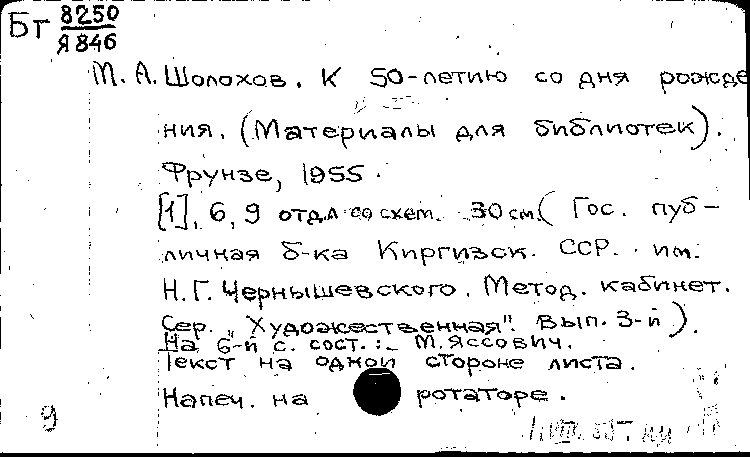 Бт 8250
Я846
М. А. Шолохов. К 50-летию со дня рожде
ния. (Материалы для библиотек).
Фрунзе, 1955.
[1], 6, 9 отд.л. со схем. 30 см. (Гос. пуб-
личная б-ка Киргизск. ССР. им.
Н. Г. Чернышевского. Метод. кабинет.
Сер. "Художественная". Вып. 3-й).
На 6-й с. сост.: М. Яссович.
Текст на одной стороне листа.
Напеч. на ротаторе.
9